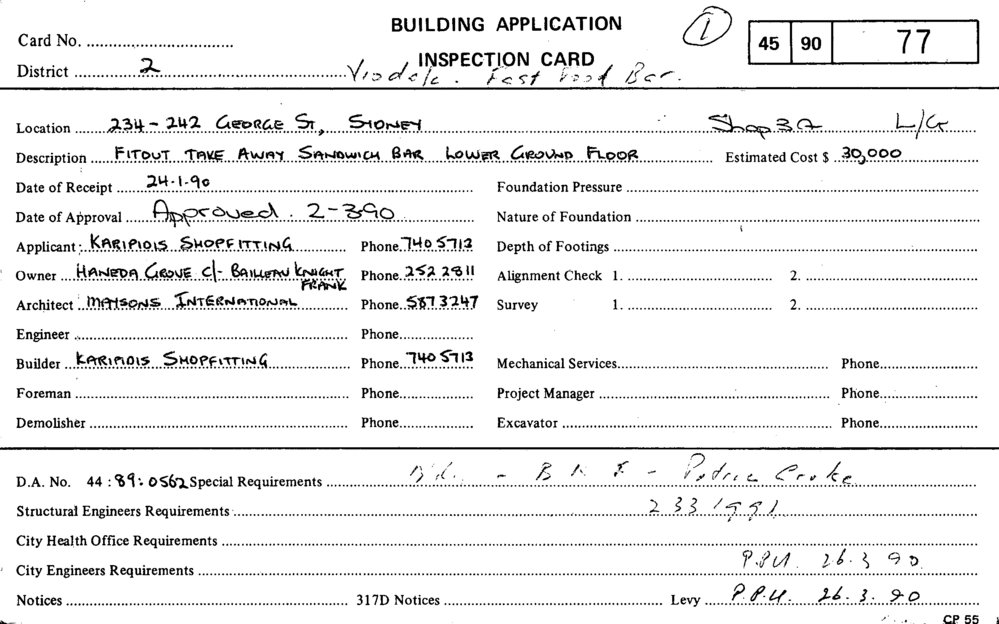 BUILDING APPLICATION
Card No. 1 45 90 77
INSPECTION CARD
District 2 Fast Food Bar.
Location 234-242 GEORGE ST, SYDNEY Shop 3A L/G
Description FITOUT TAKE AWAY SANDWICH BAR LOWER GROUND FLOOR Estimated Cost $ 30,000
Date of Receipt 24.1.90 Foundation Pressure
Date of Approval Approved. 2-3-90 Nature of Foundation
Applicant KARIPIDIS SHOPFITTING Phone 740 5713 Depth of Footings
Owner HANEDA GROVE C/- BAILLEAU KNIGHT FRANK Phone 252 2811 Alignment Check 1. 2.
Architect MATSONS INTERNATIONAL Phone 587 3247 Survey 1. 2.
Engineer Phone
Builder KARIPIDIS SHOPFITTING Phone 740 5713 Mechanical Services Phone
Foreman Phone Project Manager Phone
Demolisher Phone Excavator Phone
D.A. No. 44 : 89 : 0562 Special Requirements
Structural Engineers Requirements 233 1991
City Health Office Requirements
City Engineers Requirements 26.3 90
Notices 317D Notices Levy 26.3.90
CP 55